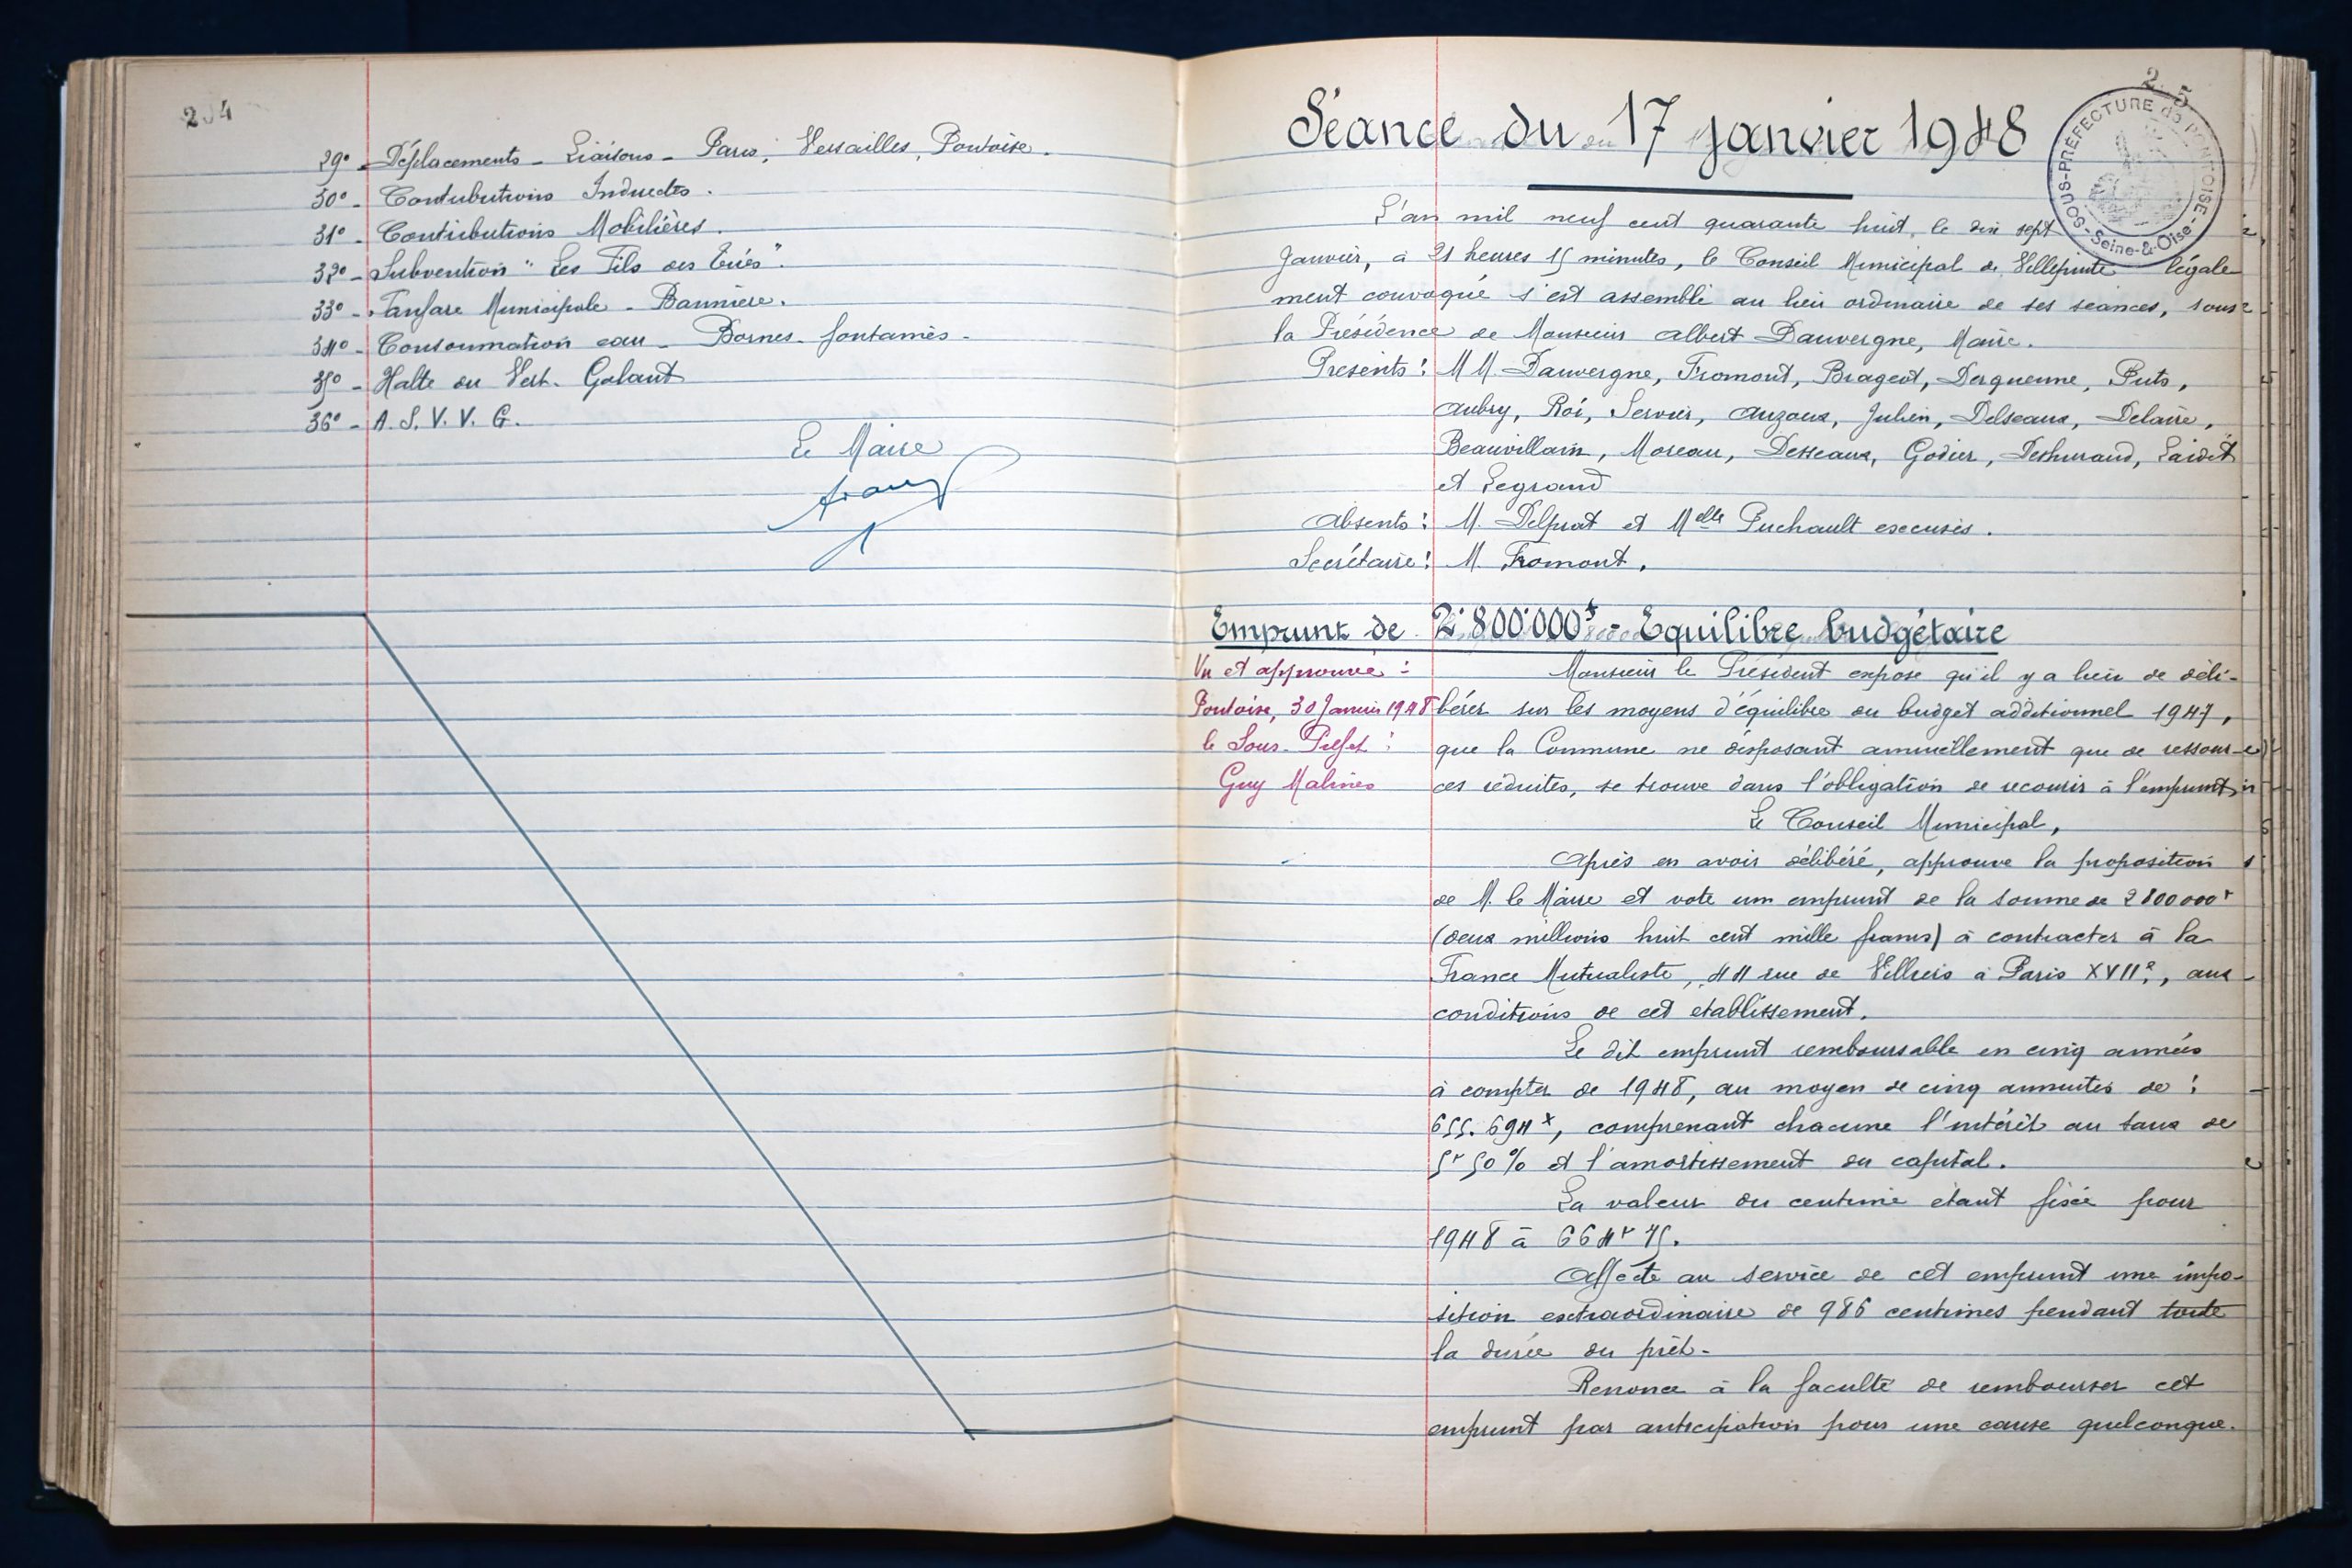 204
29° - Déplacements - Liaisons - Paris, Versailles, Pontoise.
30° - Contributions Indirectes.
31° - Contributions Mobilières.
32° - Subvention "Les Fils des Tués".
33° - Fanfare Municipale - Bannière.
34° - Consommation eau - Bornes-fontaines.
35° - Halte du Vert-Galant
36° - A. S. V. V. G.
Le Maire
Séance du 17 janvier 1948
SOUS-PRÉFECTURE de PONTOISE - Seine-&-Oise -
L'an mil neuf cent quarante huit, le dix sept
Janvier, à 21 heures 15 minutes, le Conseil Municipal de Villepinte légale
ment convoqué s'est assemblé au lieu ordinaire de ses séances, sous
la Présidence de Monsieur Albert Dauvergne, Maire.
Présents : MM. Dauvergne, Fromont, Brageot, Derquenne, Puts,
Aubry, Roi, Servier, Auzoux, Julien, Delseaux, Delaire,
Beauvillain, Moreau, Desseaux, Godier, Laidet
et Legrand
Absents : M. Delprat et Melle Puchault excusés.
Secrétaire : M. Fromont.
Emprunt de 2.800.000f - Equilibre budgétaire
Vu et approuvé :
Pontoise, 30 Janvier 1948
le Sous-Préfet :
Guy Malines
Monsieur le Président expose qu'il y a lieu de déli-
bérer sur les moyens d'équilibre du budget additionnel 1947,
que la Commune ne disposant annuellement que de ressour-
ces réduites, se trouve dans l'obligation de recourir à l'emprunt
Le Conseil Municipal,
Après en avoir délibéré, approuve la proposition
de M. le Maire et vote um emprunt de la somme de 2800000f
(deux millions huit cent mille francs) à contracter à la
France Mutualiste, 44 rue de Villiers à Paris XVIIe, aux
conditions de cet etablissement.
Le dit emprunt remboursable en cinq années
à compter de 1948, au moyen de cinq annuités de :
655.694f, comprenant chacune l'intérêt au taux de
5f50% et l'amortissement du capital.
La valeur du centime étant fixée pour
1948 à 664f75.
Affecte au service de cet emprunt une impo-
sition extraordinaire de 986 centimes pendant toute
la durée du prêt.
Renonce à la faculté de rembourser cet
emprunt par anticipation pour une cause quelconque.